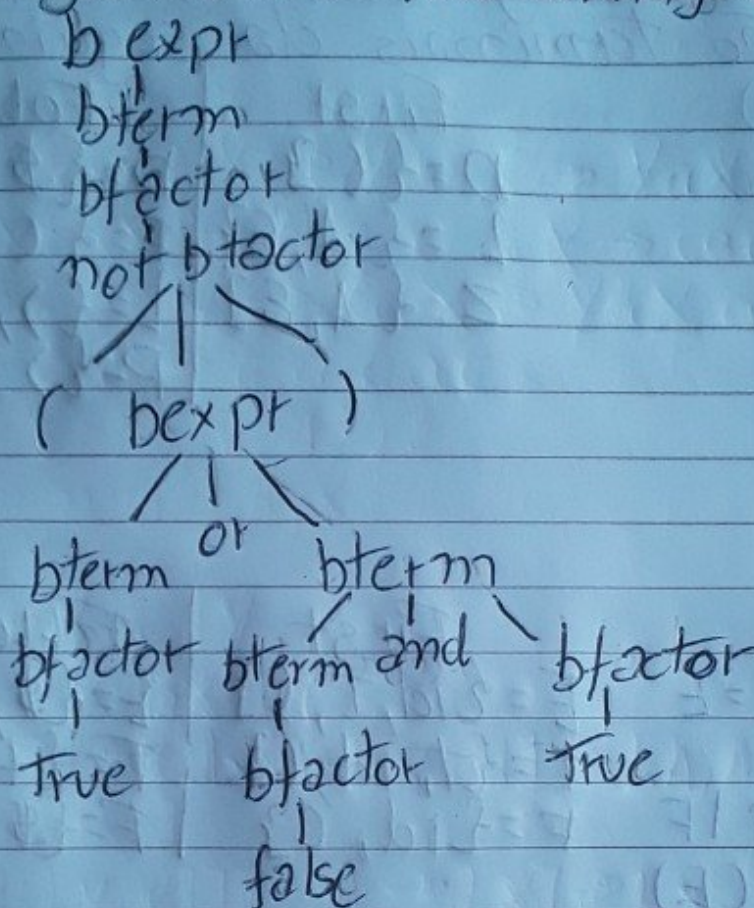 b expr
bterm
bfactor
not bfactor
( bexpr )
bterm or bterm
bfactor bterm and bfactor
True bfactor True
false